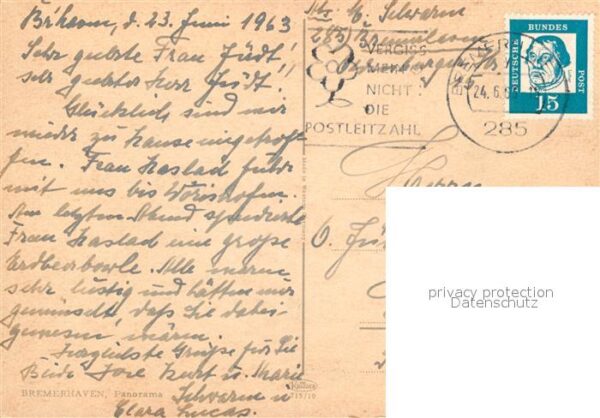 B'haven, d. 23. Juni 1963
Sehr geehrte Frau Jüdt!
sehr geehrter Herr Jüdt!
Glücklich sind wir
wieder zu Hause eingetrof-
fen. Frau Kaslad fuhr
mit uns bis Wörishofen.
Am letzten Abend spendierte
Frau Kaslad eine große
Erdbeerbowle. Alle waren
sehr lustig und hätten nur
gewünscht, daß Sie dabei-
gewesen wären.
Herzlichste Grüße für Sie
Beide Ihre Kurt u. Marie
Schwarm u
Clara Lucas.
BREMERHAVEN, Panorama
715/10
Schwarm
285 Bremerhaven
VERGISS
MEIN
NICHT
DIE
POSTLEITZAHL
24.6.6
285
DEUTSCHE BUNDES POST
15
Herrn
privacy protection
Datenschutz